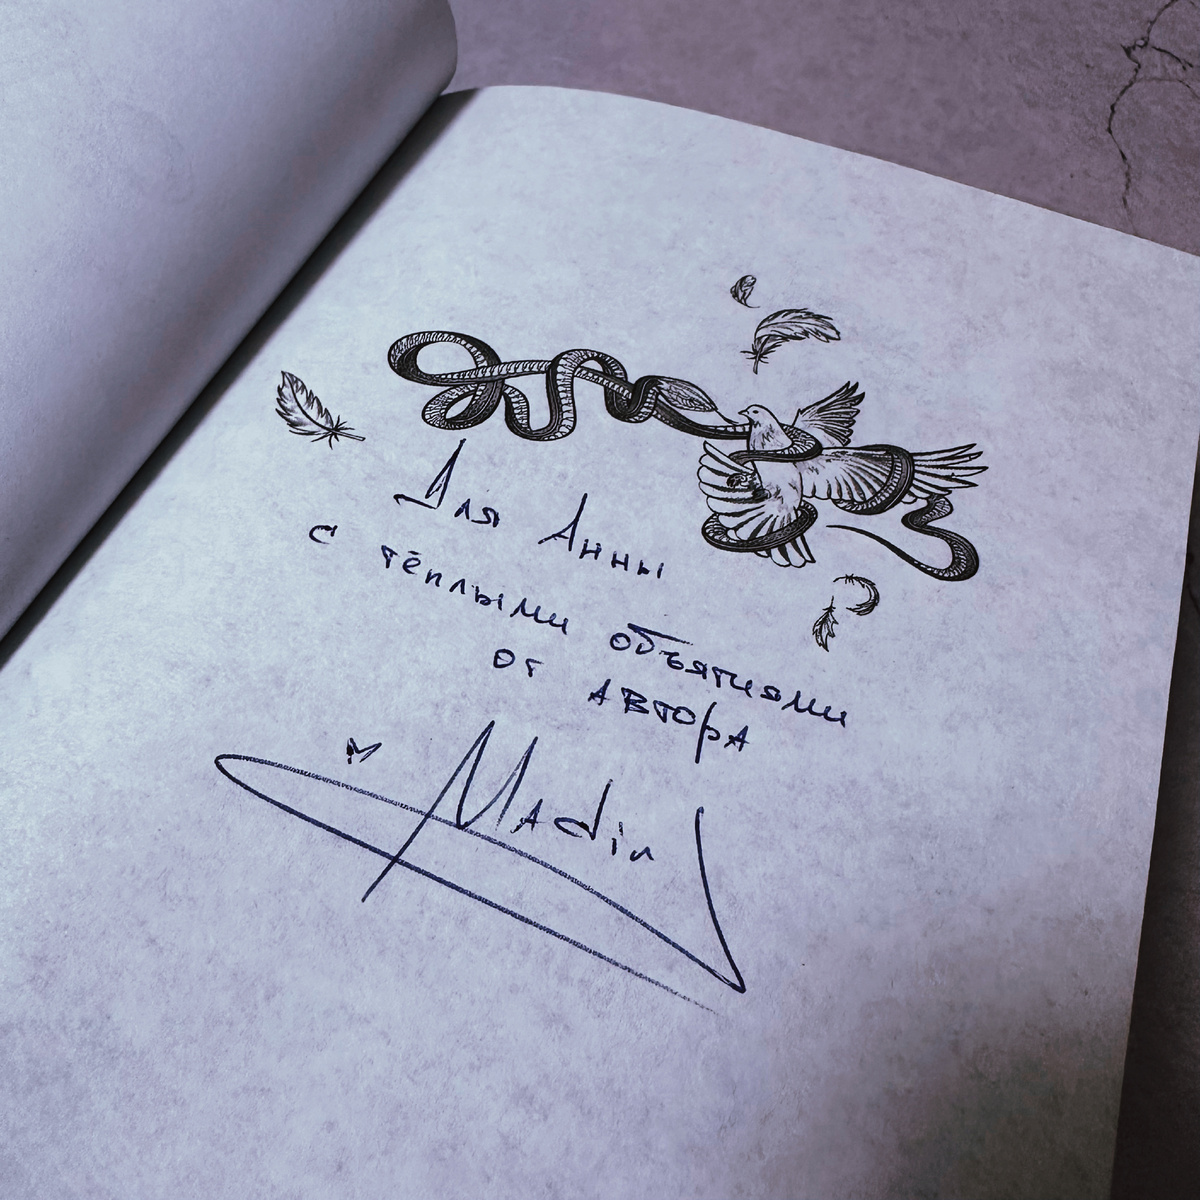 Для Анны
с тёплыми объятиями
от автора
Madin